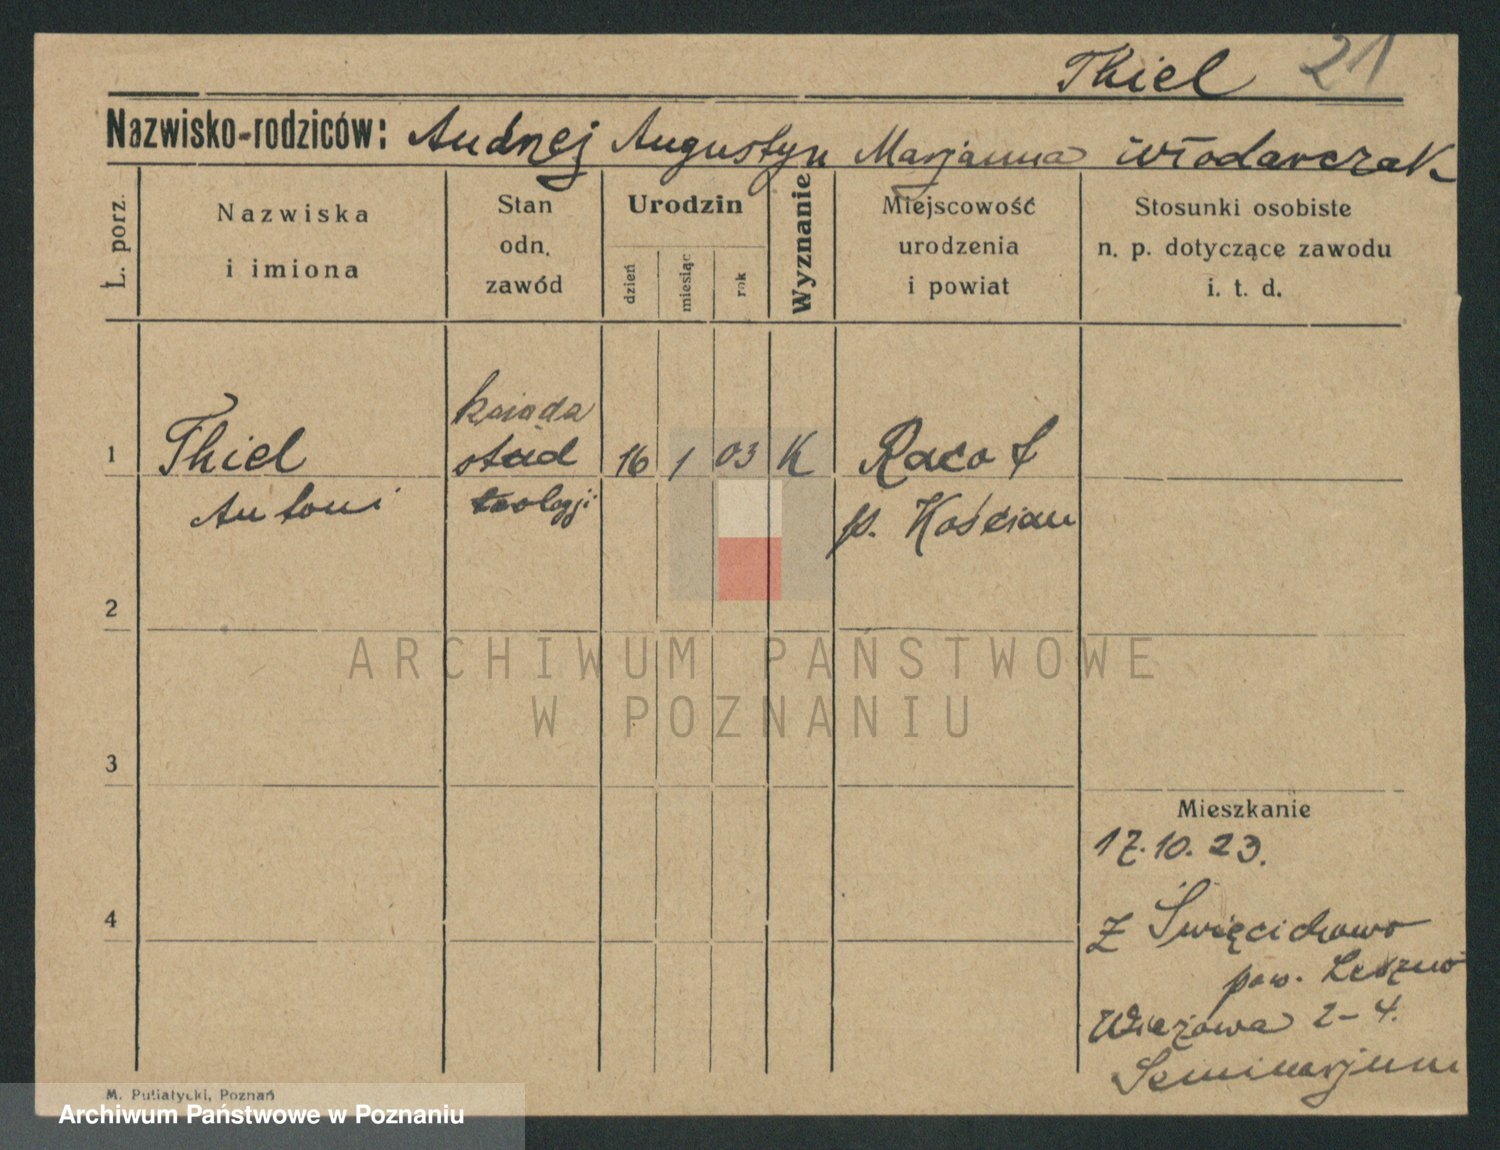 Thiel 21
Nazwisko-rodziców: Andrzej Augustyn Marjanna Włodarczak
L. porz.
Nazwiska
i imiona
Stan
odn.
zawód
Urodzin
dzień
miesiąc
rok
Wyznanie
Miejscowość
urodzenia
i powiat
Stosunki osobiste
n. p. dotyczące zawodu
i. t. d.
1
Thiel
Antoni
stud
teologji
16
1
03
K
Racot
p. Kościan
2
3
4
Mieszkanie
17.10.23.
Z Święcichowo
pow. Leszno
Wieżowa 2-4.
Seminarjum
M. Putiatycki, Poznań
ARCHIWUM PAŃSTWOWE
W POZNANIU
Archiwum Państwowe w Poznaniu